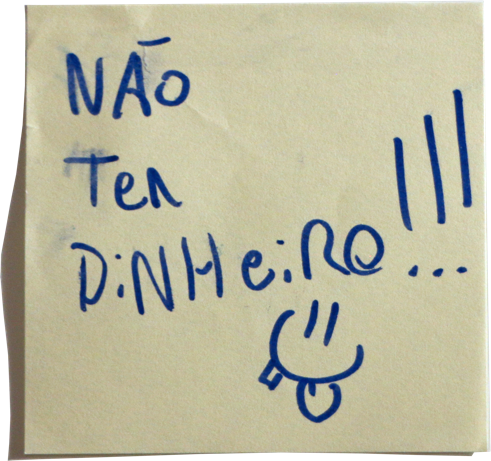 NÃO
Ter
DiNHeiRO!!!...